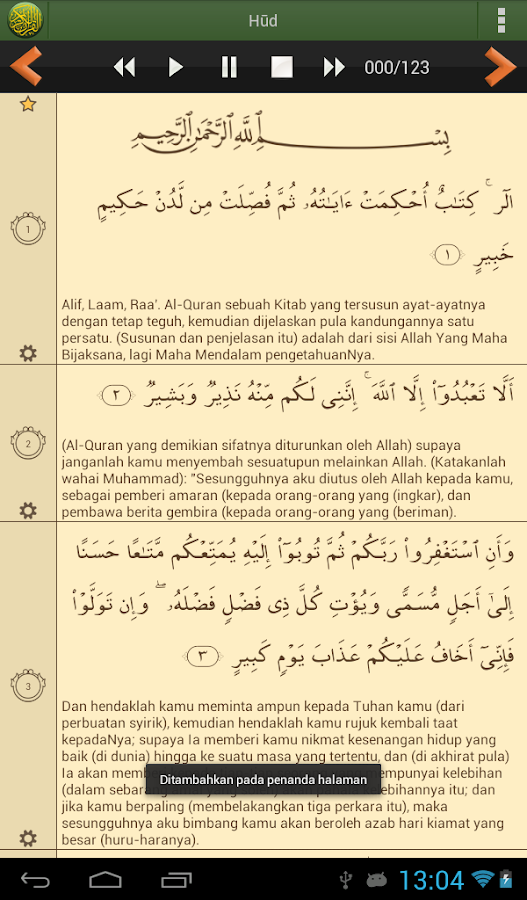 Hūd
000/123
بِسْمِ ٱللَّهِ ٱلرَّحْمَٰنِ ٱلرَّحِيمِ
1
الٓر ۚ كِتَـٰبٌ أُحْكِمَتْ ءَايَـٰتُهُۥ ثُمَّ فُصِّلَتْ مِن لَّدُنْ حَكِيمٍ
خَبِيرٍ ١
Alif, Laam, Raa'. Al-Quran sebuah Kitab yang tersusun ayat-ayatnya
dengan tetap teguh, kemudian dijelaskan pula kandungannya satu
persatu. (Susunan dan penjelasan itu) adalah dari sisi Allah Yang Maha
Bijaksana, lagi Maha Mendalam pengetahuanNya.
2
أَلَّا تَعْبُدُوٓا۟ إِلَّا ٱللَّهَ ۚ إِنَّنِى لَكُم مِّنْهُ نَذِيرٌ وَبَشِيرٌ ٢
(Al-Quran yang demikian sifatnya diturunkan oleh Allah) supaya
janganlah kamu menyembah sesuatupun melainkan Allah. (Katakanlah
wahai Muhammad): "Sesungguhnya aku diutus oleh Allah kepada kamu,
sebagai pemberi amaran (kepada orang-orang yang (ingkar), dan
pembawa berita gembira (kepada orang-orang yang (beriman).
3
وَأَنِ ٱسْتَغْفِرُوا۟ رَبَّكُمْ ثُمَّ تُوبُوٓا۟ إِلَيْهِ يُمَتِّعْكُم مَّتَـٰعًا حَسَنًا
إِلَىٰٓ أَجَلٍ مُّسَمًّى وَيُؤْتِ كُلَّ ذِى فَضْلٍ فَضْلَهُۥ ۖ وَإِن تَوَلَّوْا۟
فَإِنِّىٓ أَخَافُ عَلَيْكُمْ عَذَابَ يَوْمٍ كَبِيرٍ ٣
Dan hendaklah kamu meminta ampun kepada Tuhan kamu (dari
perbuatan syirik), kemudian hendaklah kamu rujuk kembali taat
kepadaNya; supaya Ia memberi kamu nikmat kesenangan hidup yang
baik (di dunia) hingga ke suatu masa yang tertentu, dan (di akhirat pula)
Ia akan
Ditambahkan pada penanda halaman
(dalam itu; dan
jika kamu berpaling (membelakangkan tiga perkara itu), maka
sesungguhnya aku bimbang kamu akan beroleh azab hari kiamat yang
besar (huru-haranya).
13:04